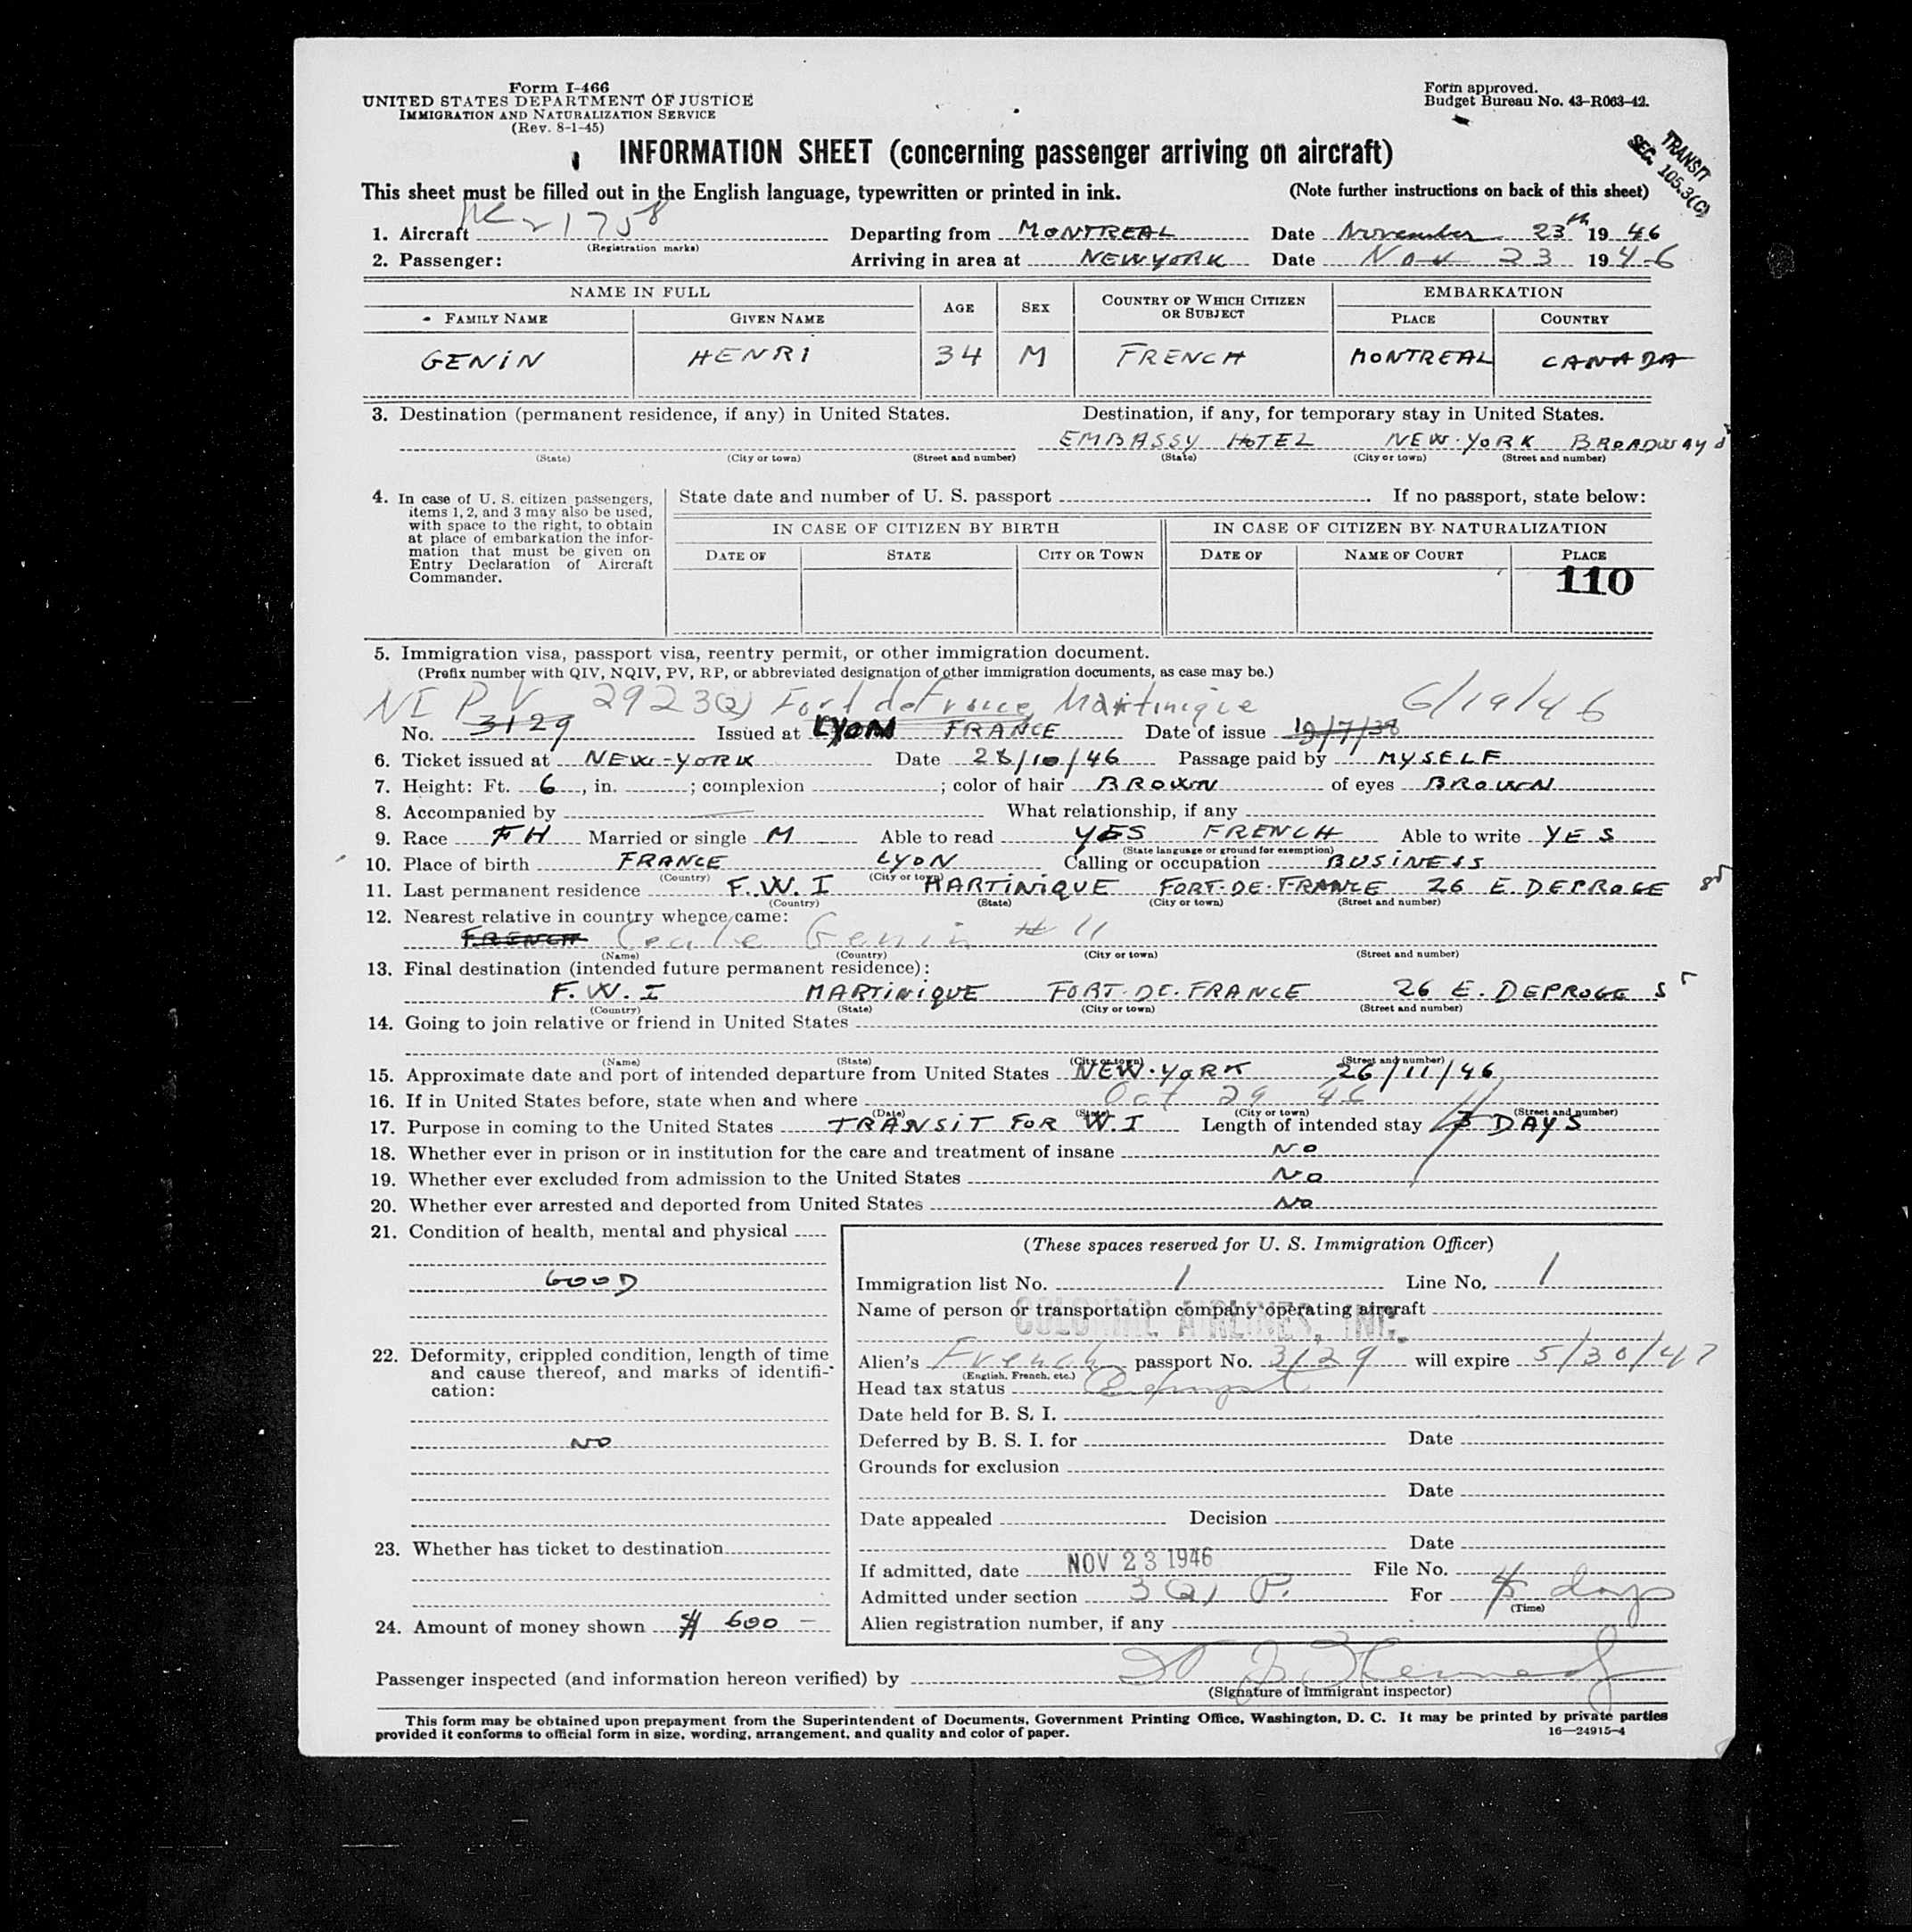 Form I-466
UNITED STATES DEPARTMENT OF JUSTICE
IMMIGRATION AND NATURALIZATION SERVICE
(Rev. 8-1-45)
Form approved.
Budget Bureau No. 43-R063-42.
TRANSIT
SEC. 105.3(C)
INFORMATION SHEET (concerning passenger arriving on aircraft)
This sheet must be filled out in the English language, typewritten or printed in ink. (Note further instructions on back of this sheet)
1. Aircraft 21758 Departing from MONTREAL Date November 23th 19 46
(Registration marks)
2. Passenger: Arriving in area at NEW YORK Date Nov 23 19 46
NAME IN FULL AGE SEX COUNTRY OF WHICH CITIZEN OR SUBJECT EMBARKATION
FAMILY NAME GIVEN NAME PLACE COUNTRY
GENIN HENRI 34 M FRENCH MONTREAL CANADA
3. Destination (permanent residence, if any) in United States. Destination, if any, for temporary stay in United States.
EMBASSY HOTEL NEW-YORK BROADWAY
(State) (City or town) (Street and number) (State) (City or town) (Street and number)
4. In case of U. S. citizen passengers, items 1, 2, and 3 may also be used, with space to the right, to obtain at place of embarkation the information that must be given on Entry Declaration of Aircraft Commander.
State date and number of U. S. passport . If no passport, state below:
IN CASE OF CITIZEN BY BIRTH IN CASE OF CITIZEN BY NATURALIZATION
DATE OF STATE CITY OR TOWN DATE OF NAME OF COURT PLACE
110
5. Immigration visa, passport visa, reentry permit, or other immigration document.
(Prefix number with QIV, NQIV, PV, RP, or abbreviated designation of other immigration documents, as case may be.)
NI PV 2923 Fort de France Martinique 6/19/46
No. 3129 Issued at LYON FRANCE Date of issue 19/7/38
6. Ticket issued at NEW-YORK Date 28/10/46 Passage paid by MYSELF
7. Height: Ft. 6, in. ; complexion ; color of hair BROWN of eyes BROWN
8. Accompanied by What relationship, if any
9. Race FH Married or single M Able to read YES FRENCH Able to write YES
(State language or ground for exemption)
10. Place of birth FRANCE LYON Calling or occupation BUSINESS
(Country) (City or town)
11. Last permanent residence F.W.I MARTINIQUE FORT-DE-FRANCE 26 E. DEPROGE
(Country) (State) (City or town) (Street and number)
12. Nearest relative in country whence came:
FRENCH Cecile Genin # 11
(Name) (Country) (City or town) (Street and number)
13. Final destination (intended future permanent residence):
F.W.I MARTINIQUE FORT-DE-FRANCE 26 E. DEPROGE St
(Country) (State) (City or town) (Street and number)
14. Going to join relative or friend in United States
(Name) (State) (City or town) (Street and number)
15. Approximate date and port of intended departure from United States NEW-YORK 26/11/46
16. If in United States before, state when and where Oct 29 46
(Date) (State) (City or town) (Street and number)
17. Purpose in coming to the United States TRANSIT FOR W.I Length of intended stay DAYS
18. Whether ever in prison or in institution for the care and treatment of insane NO
19. Whether ever excluded from admission to the United States NO
20. Whether ever arrested and deported from United States NO
21. Condition of health, mental and physical
GOOD
22. Deformity, crippled condition, length of time and cause thereof, and marks of identification:
NO
23. Whether has ticket to destination
24. Amount of money shown $ 600 -
(These spaces reserved for U. S. Immigration Officer)
Immigration list No. 1 Line No. 1
Name of person or transportation company operating aircraft
COLONIAL AIRLINES, INC.
Alien's French passport No. 3129 will expire 5/30/47
(English, French, etc.)
Head tax status Exempt
Date held for B. S. I.
Deferred by B. S. I. for Date
Grounds for exclusion
Date
Date appealed Decision
Date
If admitted, date NOV 23 1946 File No.
Admitted under section 3 For days
(Time)
Alien registration number, if any
Passenger inspected (and information hereon verified) by
(Signature of immigrant inspector)
This form may be obtained upon prepayment from the Superintendent of Documents, Government Printing Office, Washington, D. C. It may be printed by private parties
provided it conforms to official form in size, wording, arrangement, and quality and color of paper. 16—24915-4